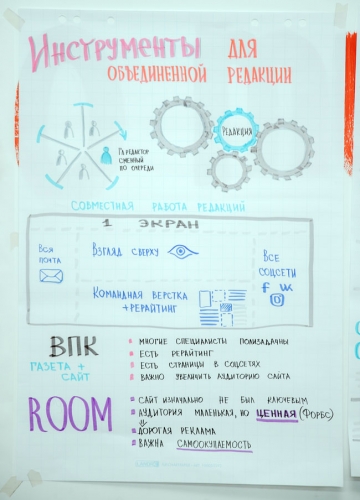 Инструменты для
объединенной редакции
Гл.редактор
сменный
по очереди
Редакция
Совместная работа редакций
1 экран
Вся
почта
Взгляд сверху
Командная верстка
+ рерайтинг
Все
соцсети
ВПК
газета +
сайт
многие специалисты полизадачны
есть рерайтинг
есть страницы в соцсетях
важно увеличить аудиторию сайта
ROOM
сайт изначально не был ключевым
аудитория маленькая, но ценная (Форбс)
дорогая реклама
важна самоокупаемость